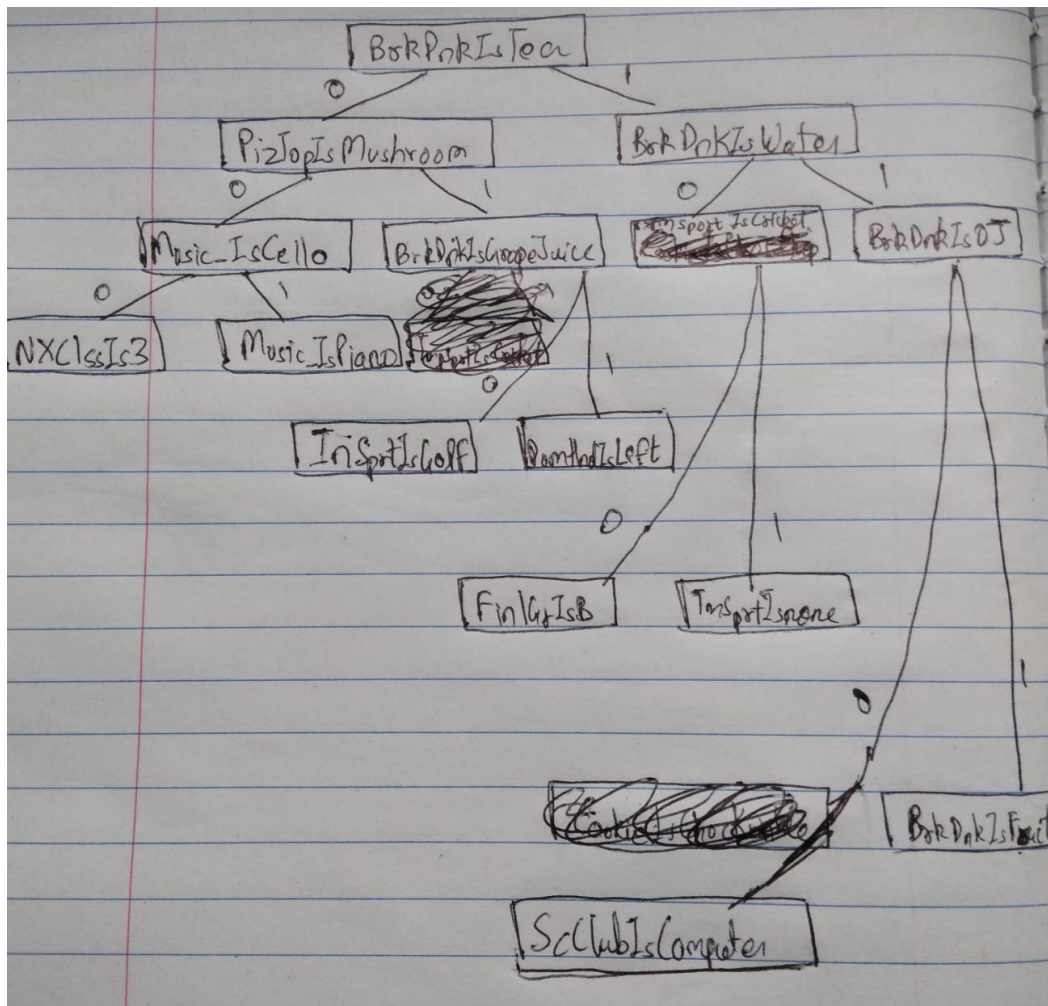 BrkDnkIsTea
0 1
PizTopIsMushroom BrkDnkIsWater
0 1 0 1
Music_IsCello BrkDnkIsGrapeJuice InSportIsCricket BrkDnkIsOJ
0 1
NXClssIs3 Music_IsPiano
0 1
InSprtIsGolf DomHndIsLeft
0 1
FinlGrIsB InSprtIsnone
0 1
BrkDnkIsFruit
ScClubIsComputer